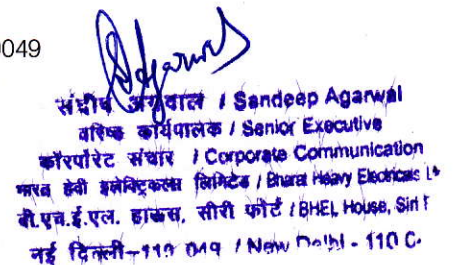 0049
Agarwal
संदीप अग्रवाल / Sandeep Agarwal
वरिष्ठ कार्यपालक / Senior Executive
कॉरपोरेट संचार / Corporate Communication
भारत हेवी इलेक्ट्रिकल्स लिमिटेड / Bharat Heavy Electricals L
बी.एच.ई.एल. हाऊस, सीरी फोर्ट / BHEL House, Siri F
नई दिल्ली-110 049 / New Delhi - 110 0